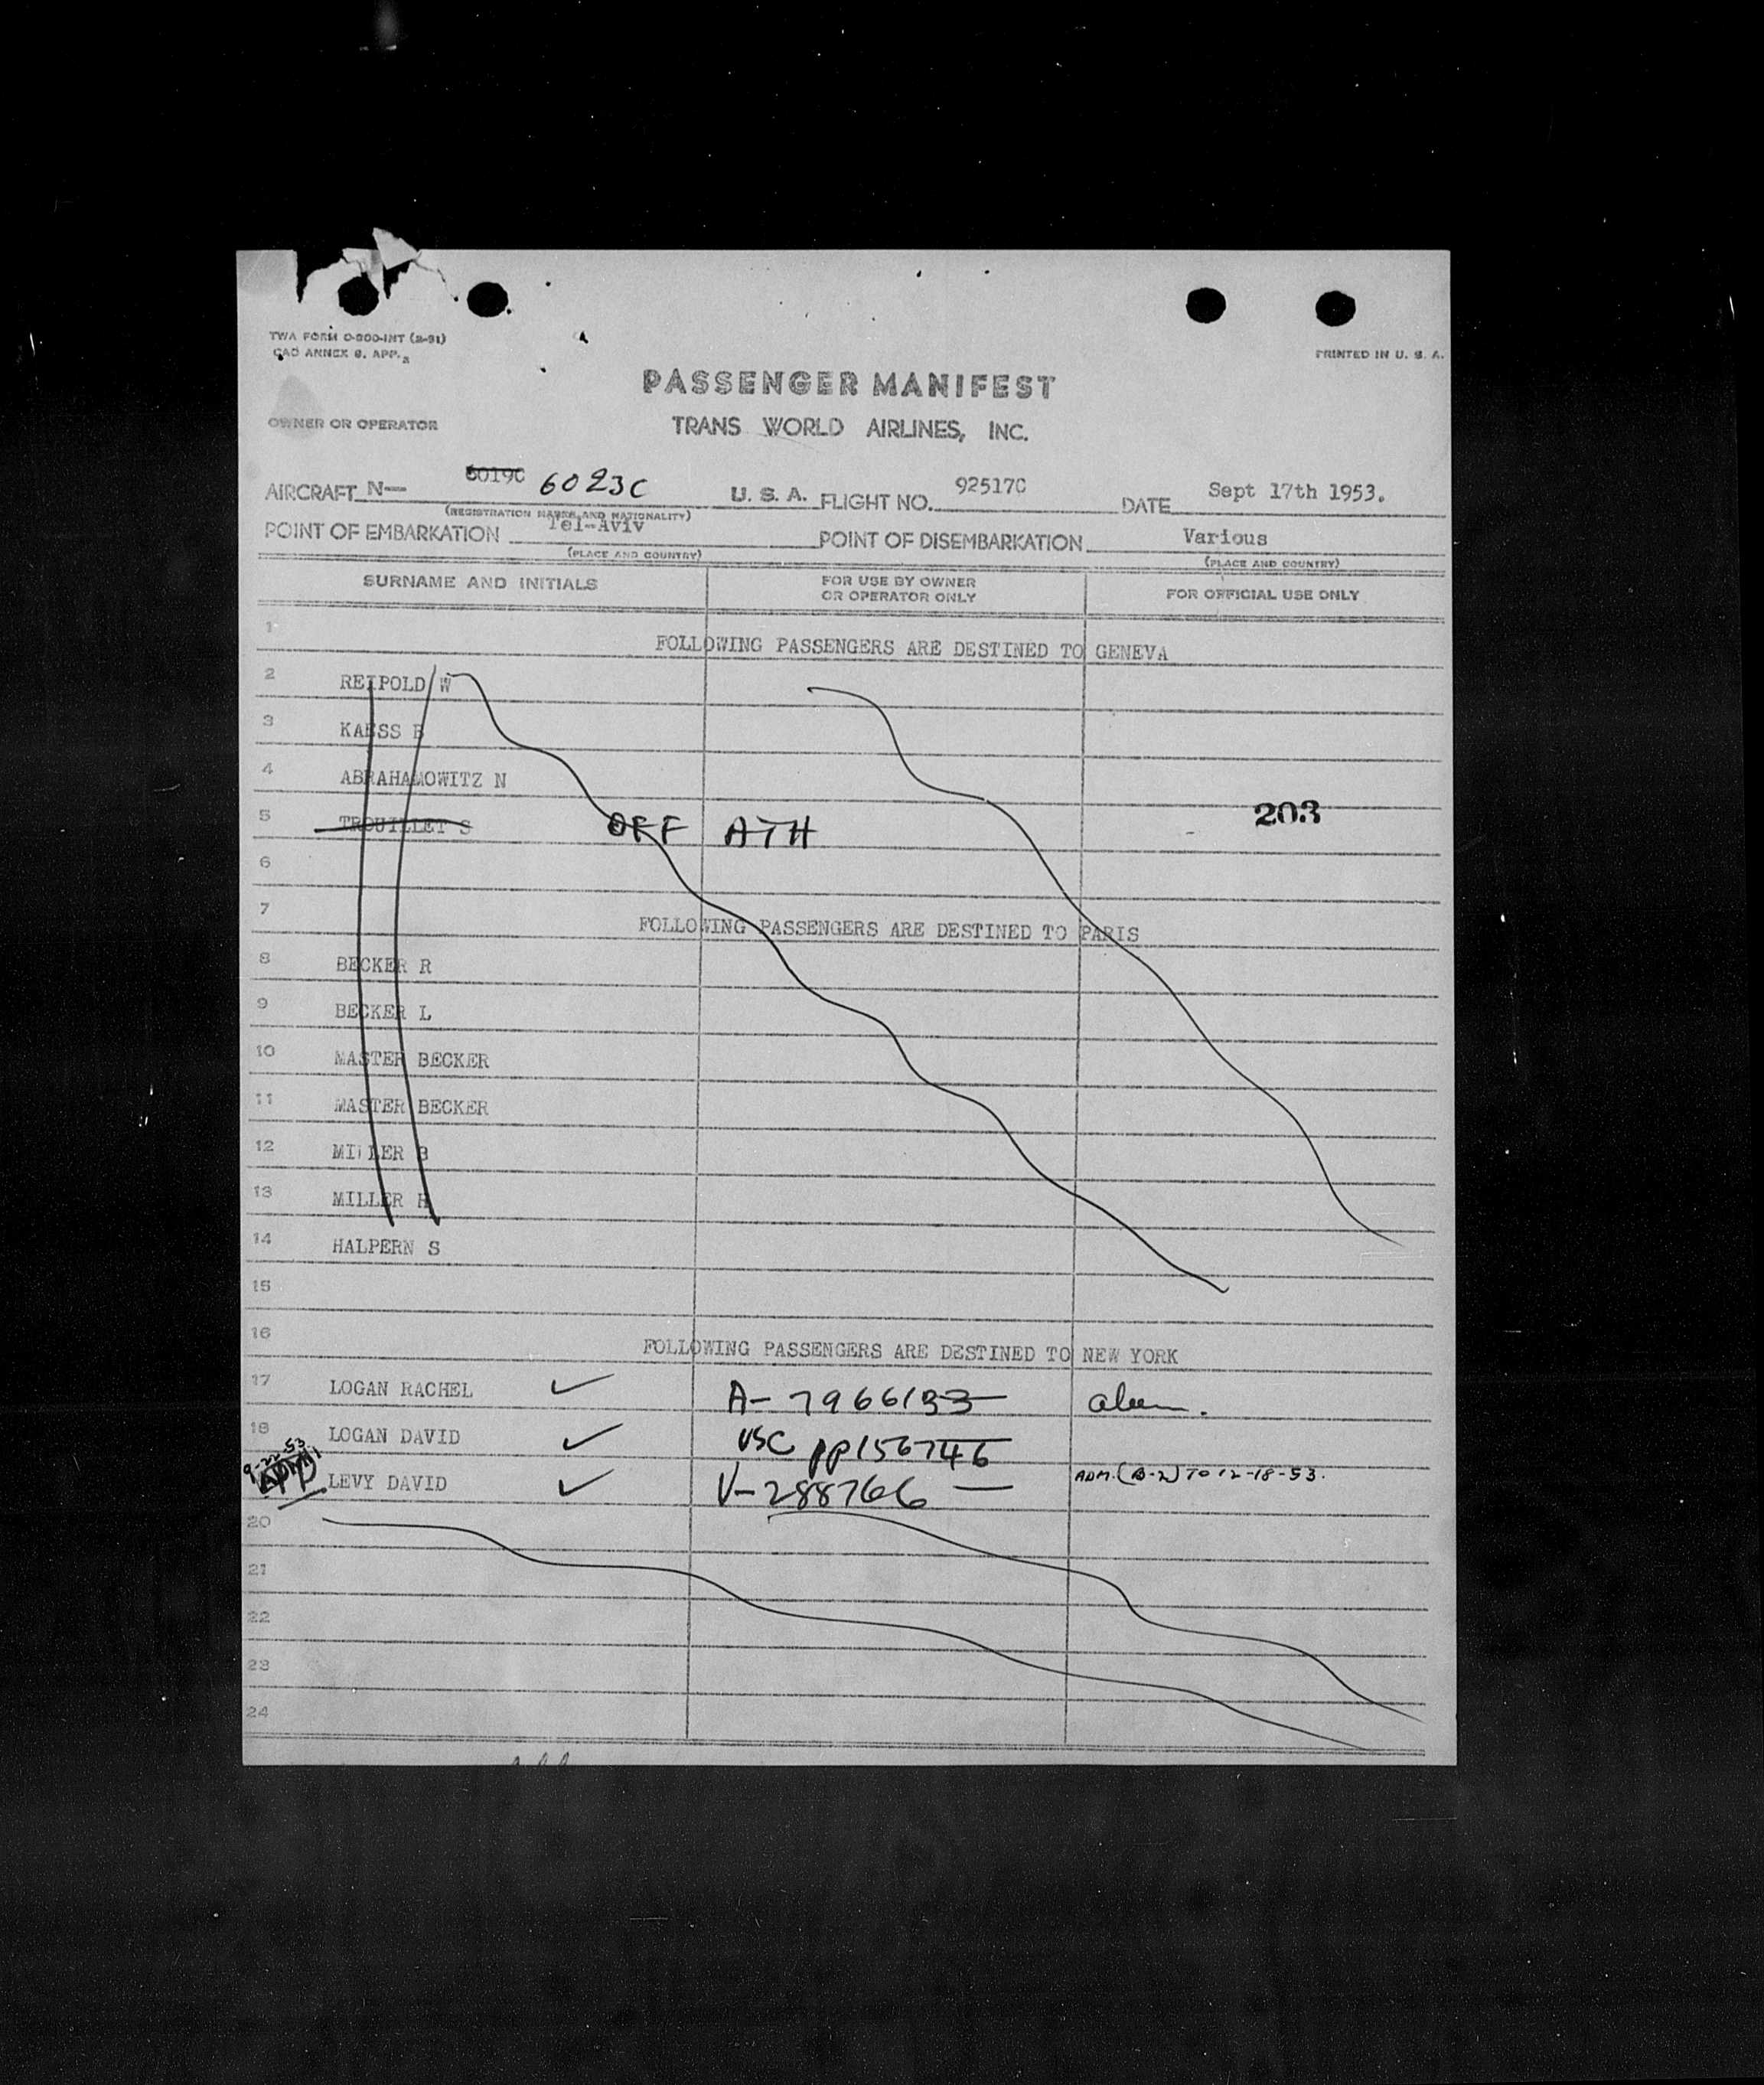 TWA FORM O-300-INT (2-51)
CAO ANNEX 9. APP. 2
PRINTED IN U. S. A.
PASSENGER MANIFEST
OWNER OR OPERATOR
TRANS WORLD AIRLINES, INC.
AIRCRAFT N— 6019C 6023C U. S. A. FLIGHT NO. 92517C DATE Sept 17th 1953.
(REGISTRATION MARKS AND NATIONALITY)
POINT OF EMBARKATION Tel-Aviv POINT OF DISEMBARKATION Various
(PLACE AND COUNTRY) (PLACE AND COUNTRY)
SURNAME AND INITIALS FOR USE BY OWNER OR OPERATOR ONLY FOR OFFICIAL USE ONLY
1 FOLLOWING PASSENGERS ARE DESTINED TO GENEVA
2 REIPOLD W
3 KAESS
4 ABRAHAMOWITZ N
5 TROUILLET S OFF ATH 203
6
7 FOLLOWING PASSENGERS ARE DESTINED TO PARIS
8 BECKER R
9 BECKER L
10 MASTER BECKER
11 MASTER BECKER
12 MILLER B
13 MILLER H
14 HALPERN S
15
16 FOLLOWING PASSENGERS ARE DESTINED TO NEW YORK
17 LOGAN RACHEL ✓ A- 7966133 alien.
18 LOGAN DAVID ✓ USC pp156746
9-22-53 LEVY DAVID ✓ V-288766 — ADM. (B-2) TO 12-18-53.
20
21
22
23
24